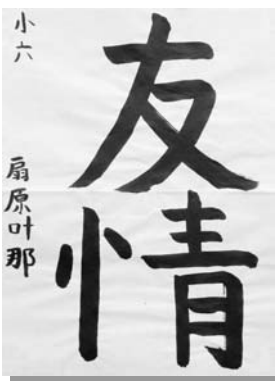 友情
小六
扇原叶那